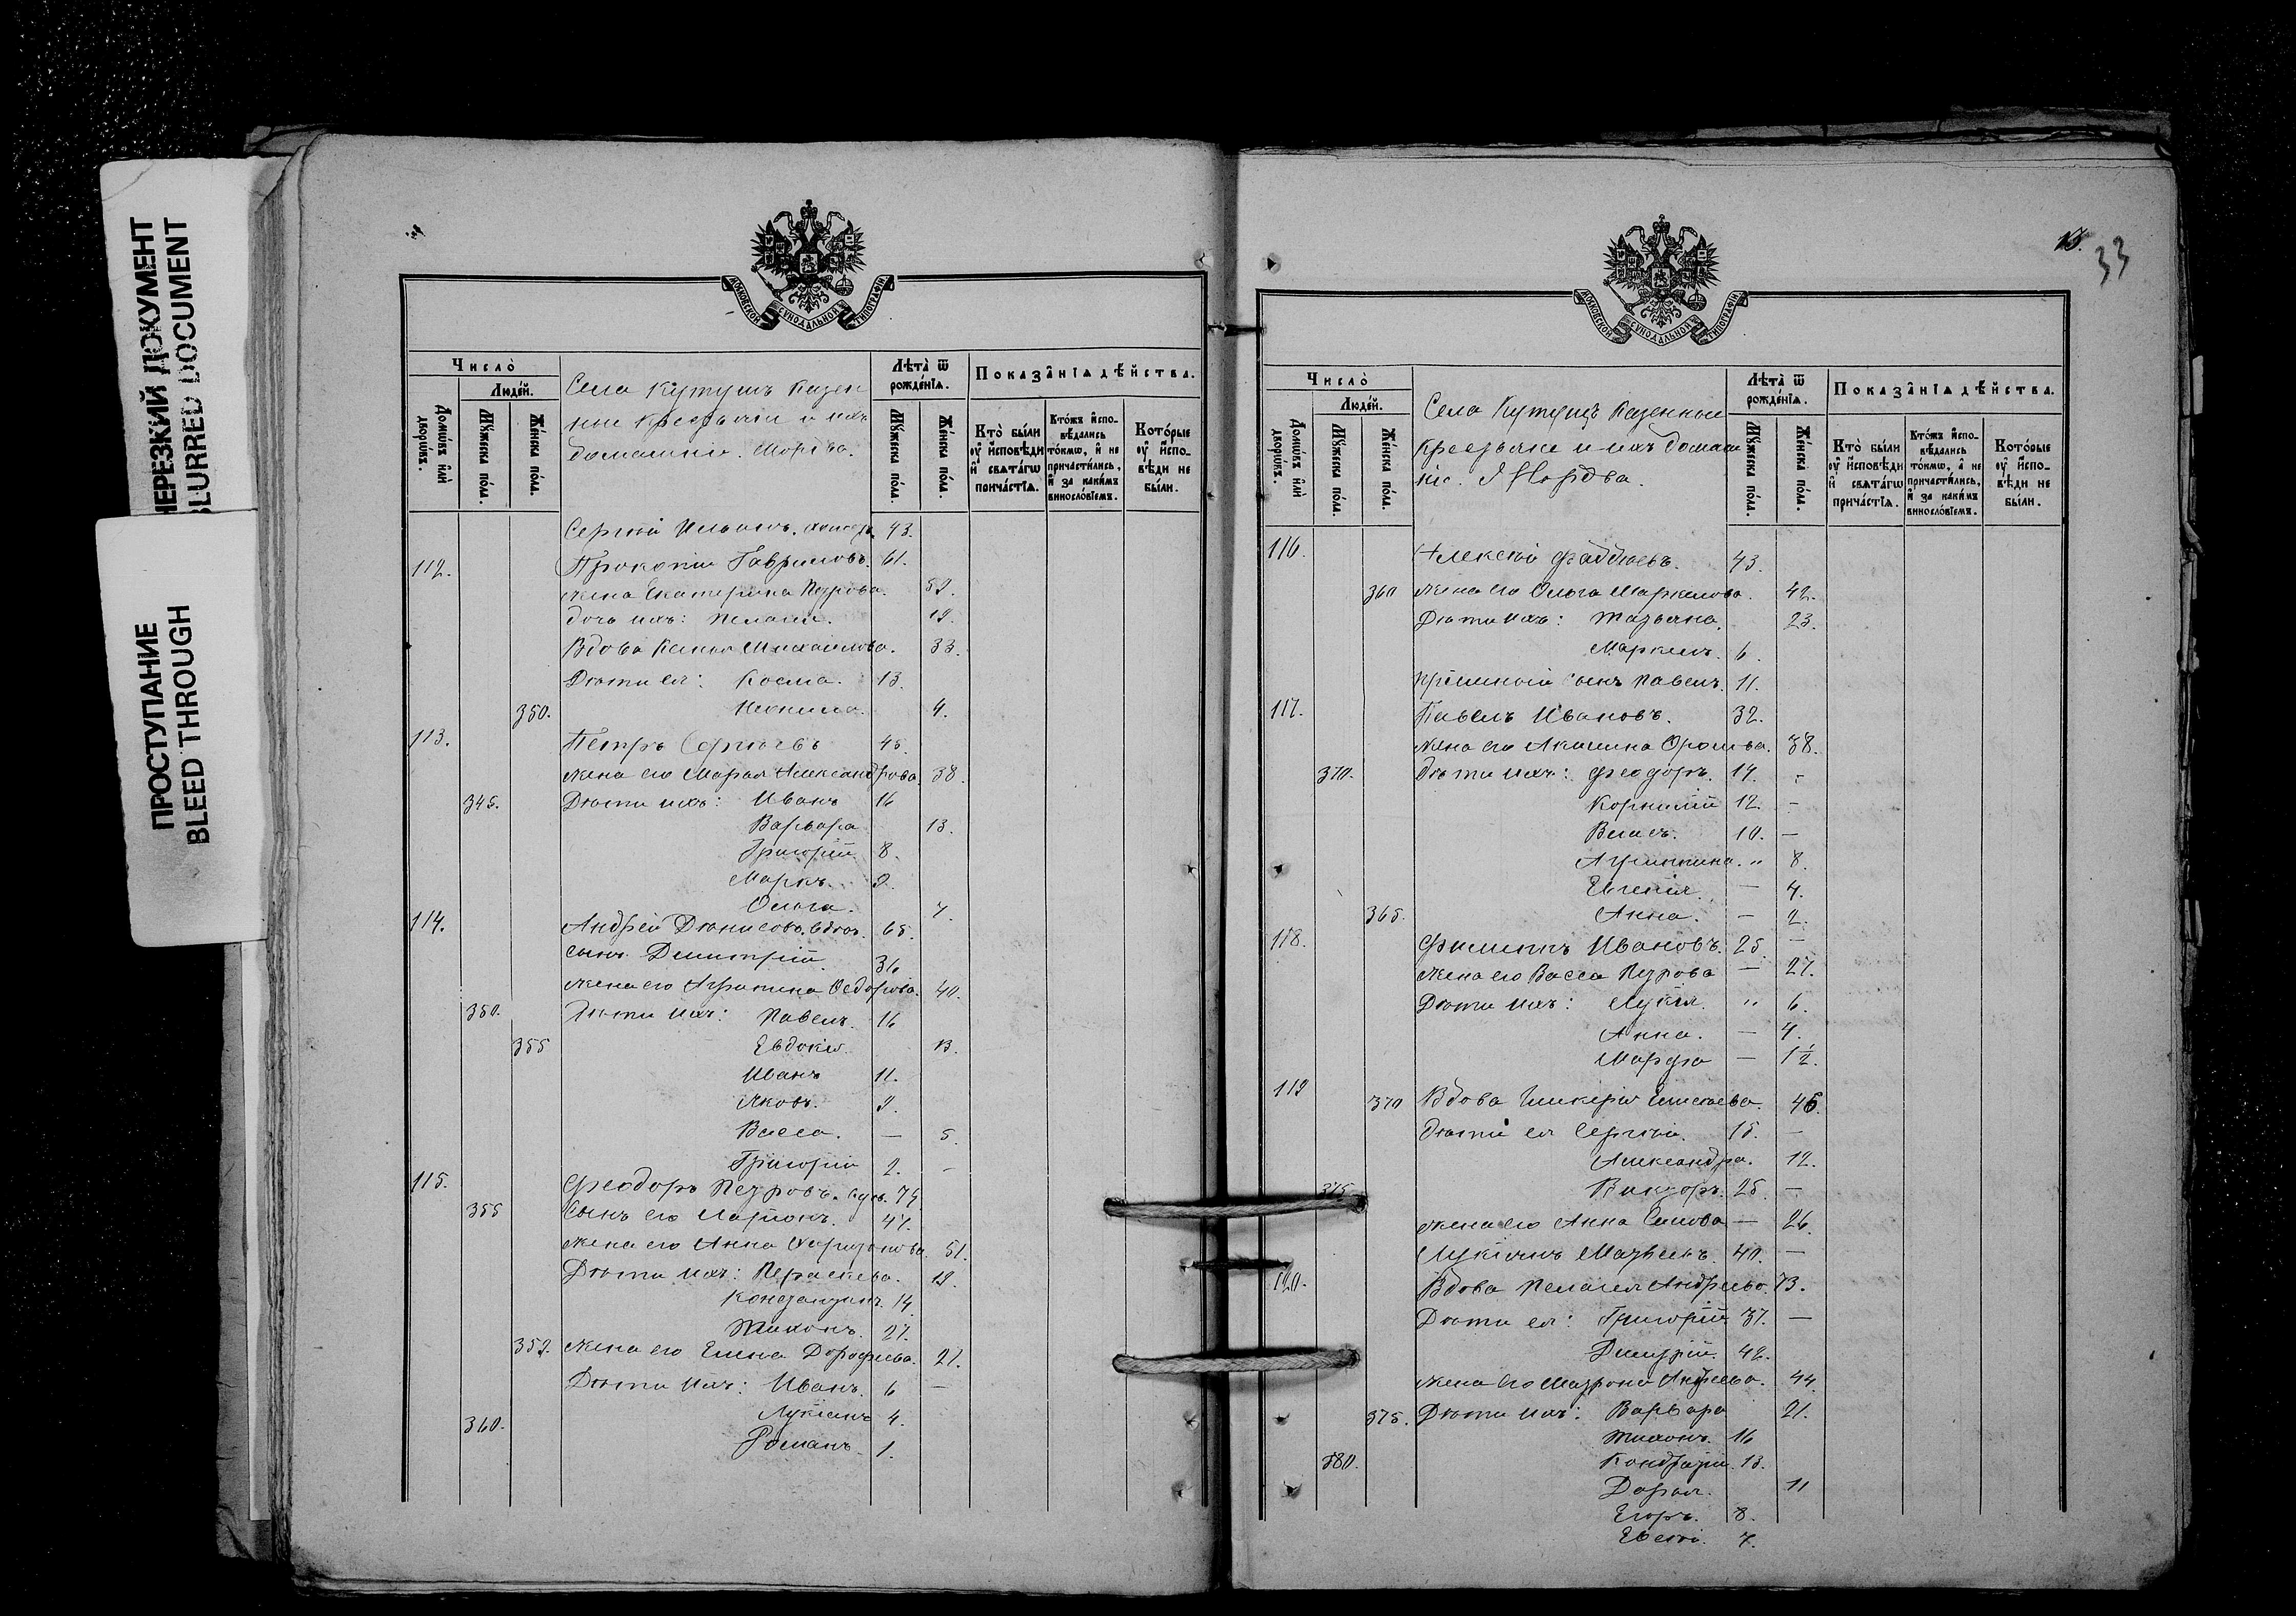 НЕРЕЗКИЙ ДОКУМЕНТ
BLURRED DOCUMENT
ПРОСТУПАНИЕ
BLEED THROUGH
МОСКОВСКОЙ СУНОДАЛЬНОЙ ТИПОГРАФІИ
Число̀
Домѡ́въ и҆лѝ дворѡ́въ.
Люде́й.
Мꙋ́жеска по́ла.
Же́нска по́ла.
Села Кутушъ Казен
ные крестьяне и ихъ
домашніе. Мордва.
Лѣта̀ ѿ рожде́нїѧ.
Мꙋ́жеска по́ла.
Же́нска по́ла.
Показа̑нїѧ дѣ́йства.
Кто̀ бы́ли ᲂу҆ и҆сповѣ́ди и҆ свѧта́гѡ прича́стїѧ.
Кто́жъ и҆спо- вѣ́дались то́кмѡ, и҆ не причасти́лись, и҆ за каки́мъ виносло́вїемъ.
Кото́рые ᲂу҆ и҆спо- вѣ́ди не бы́ли.
Сергій 43.
112. Прокопій Гавриловъ. 61.
жена Екатерина Петрова. 52.
дочь ихъ: 19.
Вдова Михаилова. 33.
Дѣти ея: Косма. 13.
350. 4.
113. Петръ Сергѣевъ 45.
жена его Марія Александрова. 38.
345. Дѣти ихъ: Иванъ 16
Варвара 13.
Григорій 8.
Маркъ. 9.
Ольга. 7.
114. Андрей Денисовъ, вдов. 65.
сынъ Димитрій. 36
жена его Агрипина Ѳедорова. 40.
350. Дѣти ихъ: Павелъ. 16
355 Евдокія. 13.
Иванъ 11.
Яковъ. 9.
Васса. — 5.
Григорій 2. —
115. Ѳеодоръ Петровъ. 74
355 Сынъ его Ларіонъ. 47.
жена его Анна Харитонова. 51.
Дѣти ихъ: Параскева. 19.
Константинъ. 14.
Тихонъ. 27.
359. жена его Елена Дорофеева. 21.
Дѣти ихъ: Иванъ. 6 —
Лукіанъ 4.
360. Романъ. 1.
33
МОСКОВСКОЙ СУНОДАЛЬНОЙ ТИПОГРАФІИ
Число̀
Домѡ́въ и҆лѝ дворѡ́въ.
Люде́й.
Мꙋ́жеска по́ла.
Же́нска по́ла.
Села Кутушъ Казенные
крестьяне и ихъ домаш
ніе. Мордва.
Лѣта̀ ѿ рожде́нїѧ.
Мꙋ́жеска по́ла.
Же́нска по́ла.
Показа̑нїѧ дѣ́йства.
Кто̀ бы́ли ᲂу҆ и҆сповѣ́ди и҆ свѧта́гѡ прича́стїѧ.
Кто́жъ и҆спо- вѣ́дались то́кмѡ, и҆ не причасти́лись, и҆ за каки́мъ виносло́вїемъ.
Кото́рые ᲂу҆ и҆спо- вѣ́ди не бы́ли.
116. Алексѣй Фаддѣевъ. 43.
360 жена его Ольга Маркелова. 42.
Дѣти ихъ: Татьяна. 23.
Маркелъ. 6.
пріемный сынъ Павелъ. 11.
117. Павелъ Ивановъ. 32.
жена его Акилина 38.
370. Дѣти ихъ: Ѳеодоръ. 14. -
Корнилій 12. -
Власъ. 10. —
Агриппина. „ 8.
Евгенія. — 4.
365. Анна. — 2.
118. Филиппъ Ивановъ. 25. —
жена его Васса Петрова — 27.
Дѣти ихъ: Лукія. „ 6.
Анна. — 4.
Марфа — 1 1/2.
119 370 Вдова Гликерія 46.
Дѣти ея Сергѣй. 15. —
Александра. 12.
375. Викторъ. 25. —
жена его Анна — 26.
Лукіанъ Матвеевъ. 40. —
120. Вдова Пелагея Андреева. 73.
Дѣти ея: Григорій 37. —
Димитрій. 42.
жена его Матрона 44.
375. Дѣти ихъ: Варвара 21.
Тихонъ. 16
380. Кондратій. 13.
Дарья. 11
Егоръ. 8.
7.